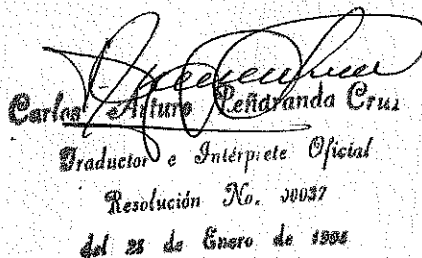 Carlos Arturo Peñaranda Cruz
Traductor e Intérprete Oficial
Resolución No. 00037
del 28 de Enero de